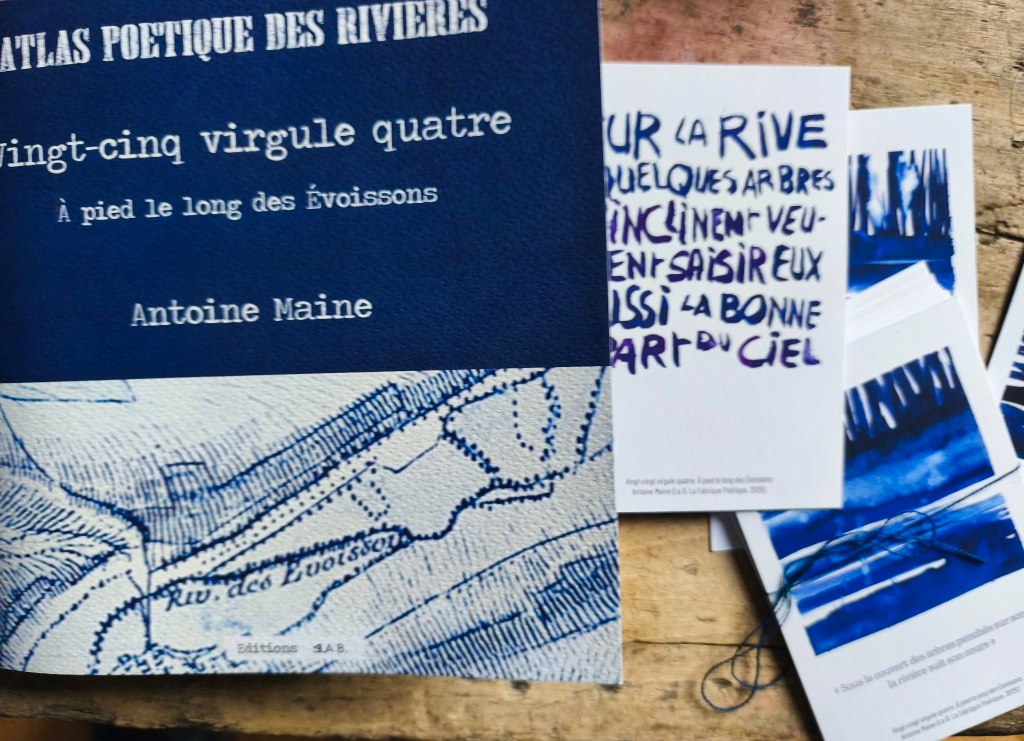 ATLAS POETIQUE DES RIVIERES
Vingt-cinq virgule quatre
À pied le long des Évoissons
Antoine Maine
Riv. des Evoissons
Editions
UR LA RIVE
QUELQUES ARBRES
INCLINENT VEU-
ENT SAISIR EUX
USSI LA BONNE
PART DU CIEL
Vingt-cinqt virgule quatre. À pied le long des Évoissons
Antoine Maine (La B. La Fabrique Poétique, 2025)
« Sous le couvert des arbres penchés sur son
la rivière suit son cours »
Vingt-cinqt virgule quatre. À pied le long des Évoissons
Antoine Maine (La B. La Fabrique Poétique, 2025)